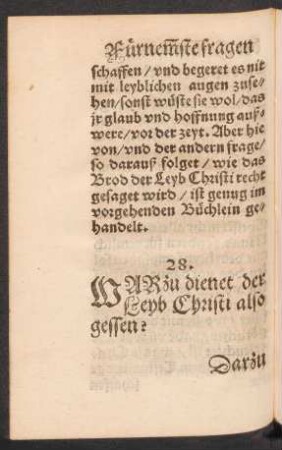 Fürnemste fragen
schaffen / vnd begeret es nit
mit leyblichen augen zuse-
hen / sonst wüste sie wol / das
jr glaub vnd hoffnung auß-
were / vor der zeyt. Aber hie
von / vnd der andern frage /
so darauß folget / wie das
Brod der Leyb Christi recht
gesaget wird / ist genug im
vorgehenden Büchlein ge-
handelt.
28.
WARzu dienet der
Leyb Christi also
gessen?
Darzu